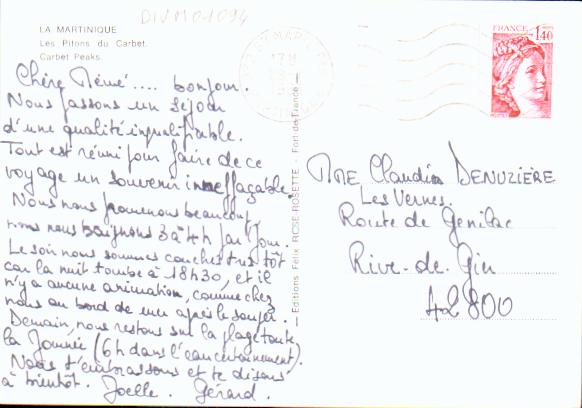 DIVM01094
LA MARTINIQUE
Les Pitons du Carbet.
Carbet Peaks.
FRANCE
1,40
Chère Mémé .... bonjour.
Nous passons un séjour
d'une qualité inqualifiable.
Tout est réuni pour faire de ce
voyage un souvenir ineffaçable.
Nous nous promenons beaucoup,
nous nous baignons 3 à 4h par jour.
Le soir nous sommes couchés très tôt
car la nuit tombe à 18h30, et il
n'y a aucune animation, comme chez
nous au bord de mer après le souper.
Demain, nous restons sur la plage toute
la Journée (6h dans l'eau certainement).
Nous t'embrassons et te disons
à bientôt. Joelle. Gérard.
Editions Félix ROSE-ROSETTE - Fort-de-France
Mme Claudia DENUZIÈRE
Les Vernes.
Route de Genilac
Rive-de-Gier
42800